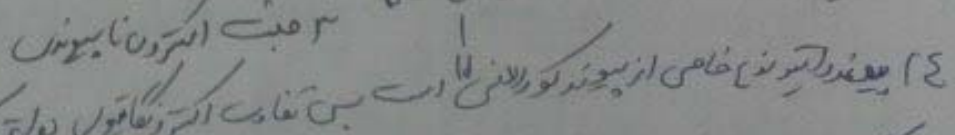 ۳ جفت الکترون ناپیوندی
۲۴ پیوند داتیو نوع خاصی از پیوند کووالانسی است پس تفاوت الکترونگاتیوی